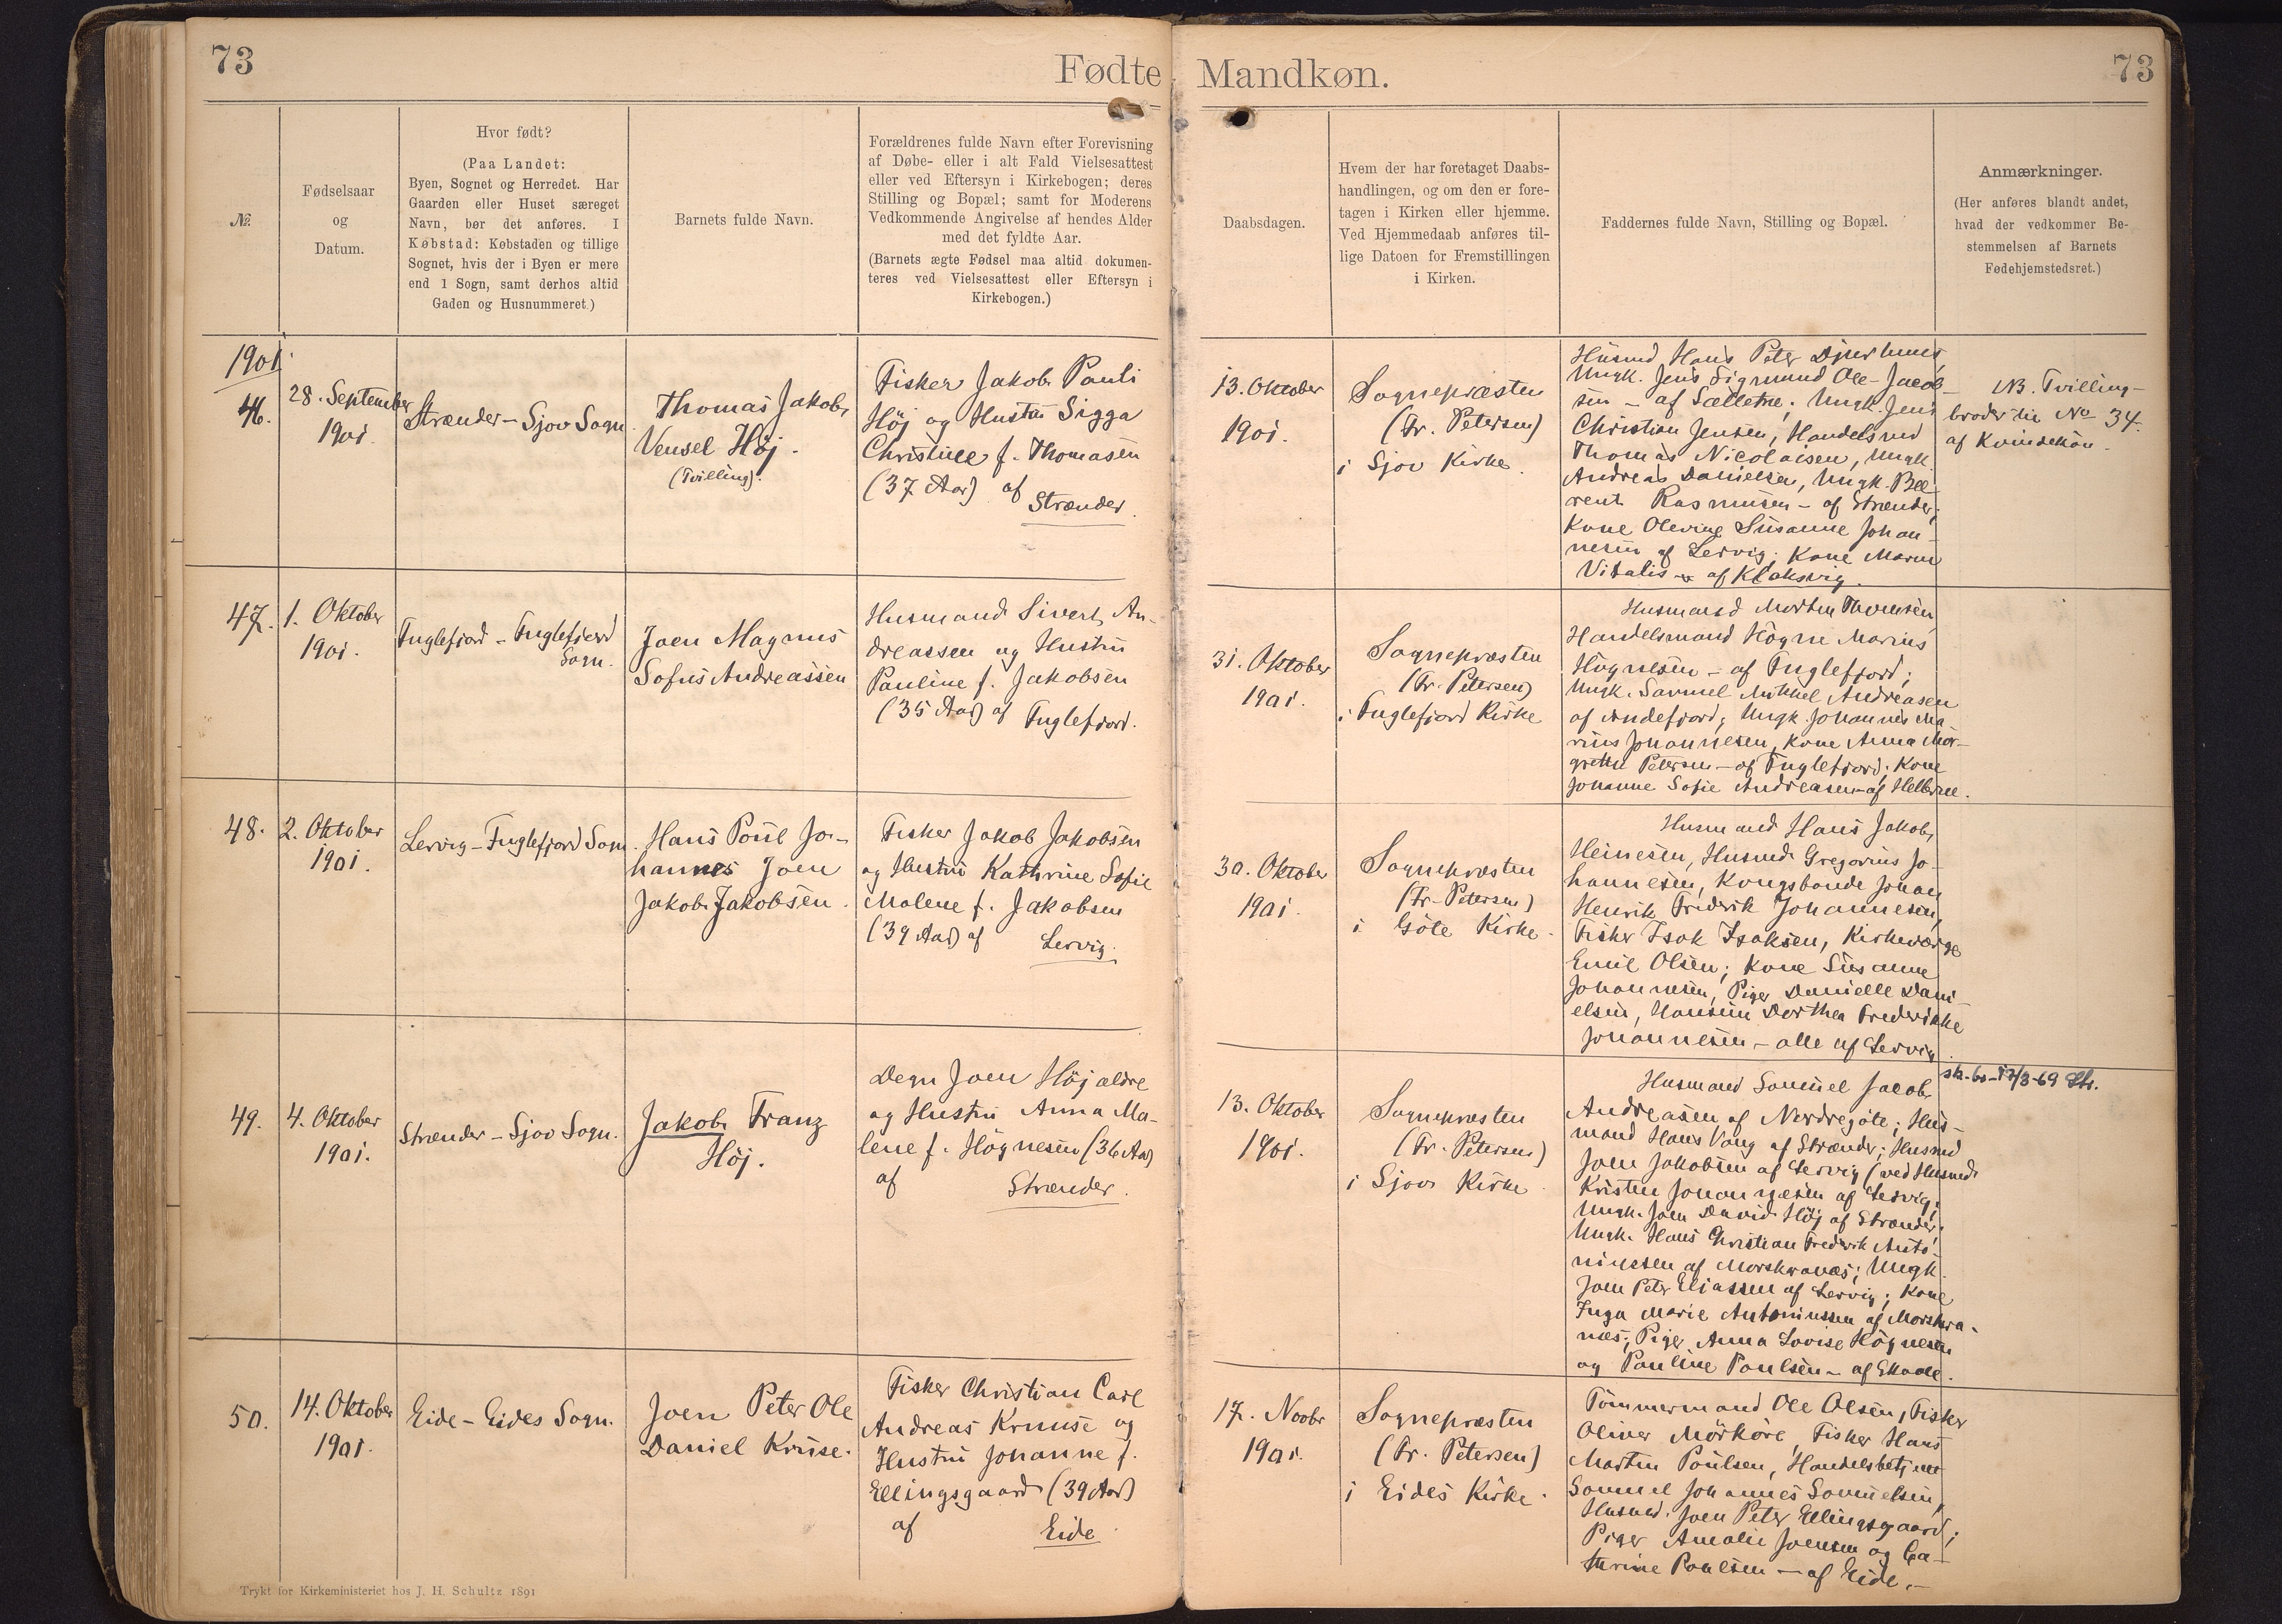 73
Fødte
Mandkøn.
73
№
Fødselsaar
og
Datum.
Hvor født?
(Paa Landet:
Byen, Sognet og Herredet. Har
Gaarden eller Huset særeget
Navn, bør det anføres. I
Købstad: Købstaden og tillige
Sognet, hvis der i Byen er mere
end 1 Sogn, samt derhos altid
Gaden og Husnummeret.)
Barnets fulde Navn.
Forældrenes fulde Navn efter Forevisning
af Døbe- eller i alt Fald Vielsesattest
eller ved Eftersyn i Kirkebogen; deres
Stilling og Bopæl; samt for Moderens
Vedkommende Angivelse af hendes Alder
med det fyldte Aar.
(Barnets ægte Fødsel maa altid dokumen-
teres ved Vielsesattest eller Eftersyn i
Kirkebogen.)
Daabsdagen.
Hvem der har foretaget Daabs-
handlingen, og om den er fore-
tagen i Kirken eller hjemme.
Ved Hjemmedaab anføres til-
lige Datoen for Fremstillingen
i Kirken.
Faddernes fulde Navn, Stilling og Bopæl.
Anmærkninger.
(Her anføres blandt andet,
hvad der vedkommer Be-
stemmelsen af Barnets
Fødehjemstedsret.)
1901.
46.
28. September
1901.
Strænder - Sjov Sogn.
Thomas Jakob
Vensel Høj.
(Tvilling).
Fisker Jakob Pauli
Høj og Hustru Sigga
Christine f. Thomasen
(37 Aar) af
Strænder.
13. Oktober
1901.
Sognepræsten
(Fr. Petersen)
i Sjov Kirke.
Husmd. Hans Peter Djurhuus,
Ungk. Jens Sigmund Ole-Jacob-
sen - af Sælletræ; Ungk. Jens
Christian Jensen, Handelsmd
Thomas Nicolaisen, Ungk.
Andreas Danielsen, Ungk.
Rasmusen - af Strænder;
Kone Olevine Susanne Johan-
nesen af Lervig; Kone Maren
Vitalis - af Klaksvig.
NB. Tvilling-
broder til No 34.
af Kvindekøn.
47.
1. Oktober
1901.
Fuglefjord - Fuglefjord
Sogn.
Joen Magnus
Sofus Andreassen
Husmand Sivert An-
dreassen og Hustru
Pauline f. Jakobsen
(35 Aar) af Fuglefjord.
31. Oktober
1901.
Sognepræsten
(Fr. Petersen)
i Fuglefjord Kirke
Husmand Morten Thomsen
Handelsmand Högne Marius
Högnesen - af Fuglefjord;
Ungk. Samuel Mikkel Andreasen
af Andefjord; Ungk. Johannes Ma-
rius Johannesen, Kone Anna Mar-
grethe Petersen - af Fuglefjord; Kone
Johanne Sofie Andreasen - af Hellerne.
48.
2. Oktober
1901.
Lervig - Fuglefjord Sogn.
Hans Poul Jo-
hannes Joen
Jakob Jakobsen.
Fisker Jakob Jakobsen
og Hustru Kathrine Sofie
Malene f. Jakobsen
(39 Aar) af
Lervig.
30. Oktober
1901.
Sognepræsten
(Fr. Petersen)
i Göte Kirke.
Husmand Hans Jakob
Heinesen, Husmd. Gregorius Jo-
hannesen, Kongsbonde Johan
Henrik Frederik Johannesen,
Fisker Isak Isaksen, Kirkeværge
Emil Olsen; Kone Susanne
Johannesen, Piger Danielle Dani-
elsen, Hansine Dorthea Frederikke
Johannesen - alle af Lervig.
49.
4. Oktober
1901.
Strænder - Sjov Sogn.
Jakob Franz
Høj.
Degn Joen Høj ældre
og Hustru Anna Ma-
lene f. Högnesen (36 Aar)
af
Strænder.
13. Oktober
1901.
Sognepræsten
(Fr. Petersen)
i Sjov Kirke.
Husmand Samuel Jacob
Andreasen af Nordregöte; Hus-
mand Hans Vang af Strænder; Husmd
Joen Jakobsen af Lervig (ved Husmd.
Kristen Johannesen af Lervig;
Ungk. Joen David Høj af Strænder;
Ungk. Hans Christian Frederik Anto-
niussen af Morskranæs; Ungk.
Joen Peter Eliassen af Lervig; Kone
Inga Marie Antoniussen af Morskra-
næs; Piger Anna Lovise Högnesen
og Pauline Poulsen - af Skaale.
sk. bs - 17/3-69
50.
14. Oktober
1901.
Eide - Eides Sogn.
Joen Peter Ole
Daniel Kruse.
Fisker Christian Carl
Andreas Kruuse og
Hustru Johanne f.
Ellingsgaard (39 Aar)
af
Eide
17. Novbr
1901.
Sognepræsten
(Fr. Petersen)
i Eides Kirke.
Tömmermand Ole Olsen, Fisker
Oliver Mörköre, Fisker Hans
Martin Poulsen, Handelsbetjent
Samuel Johannes Samuelsen,
Husmd. Joen Peter Ellingsgaard;
Piger Amalie Joensen og Ca-
thrine Poulsen - af Eide. -
Trykt for Kirkeministeriet hos J. H. Schultz 1891